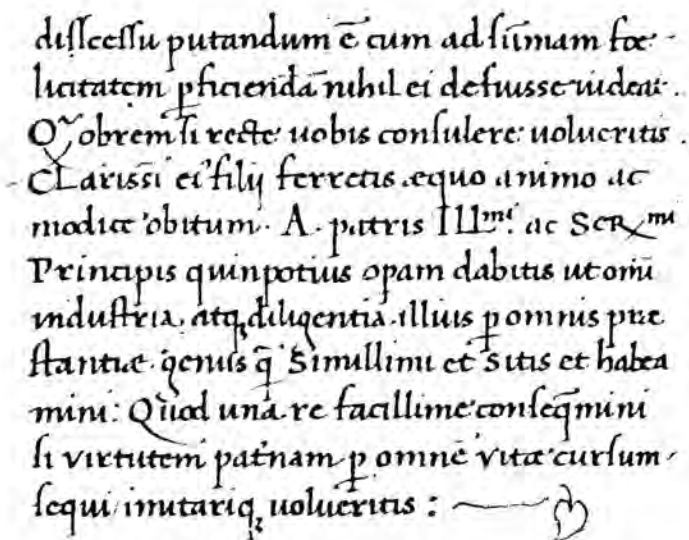 disscessu putandum ē cum ad sūmam foe-
licitatem ꝑficiendā nihil ei defuisse uideat̄.
Qͫobrem si recte uobis consulere uolueritis.
CLarissī eiꝰ filij ferretis equo animo ac
modice obitum. A. patris Illᵐⁱ. ac Serᵐⁱ
Principis quinpotius opam dabitis ut omī
industria, atqꝫ diligentia illius ꝑ omnis prae
stantiae genus q̄ simillimi et sitis et habea
mini: Quod una re facillime conseq̄mini
si virtutem pat̄nam ꝑ omnē vitae cursum
sequi imitariqꝫ uolueritis :